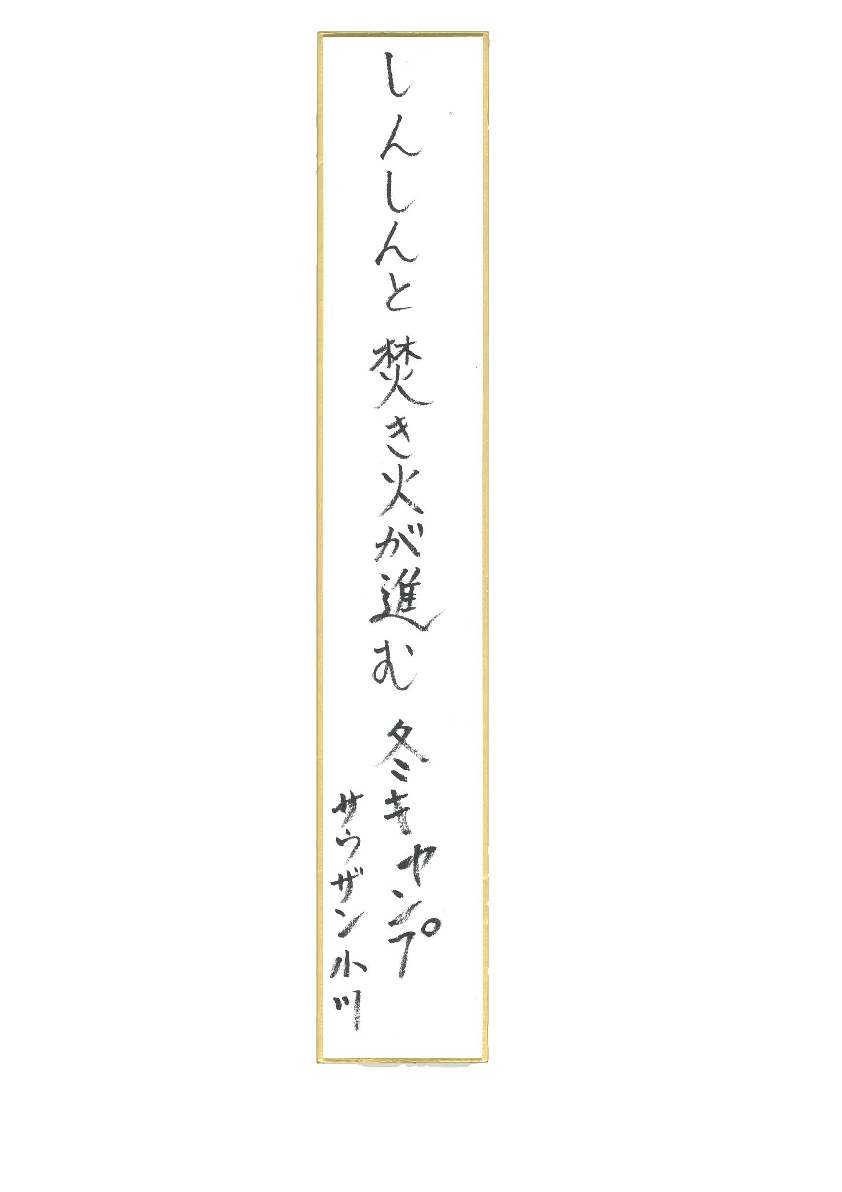 しんしんと 焚き火が進む 冬キャンプ
サウザン小川